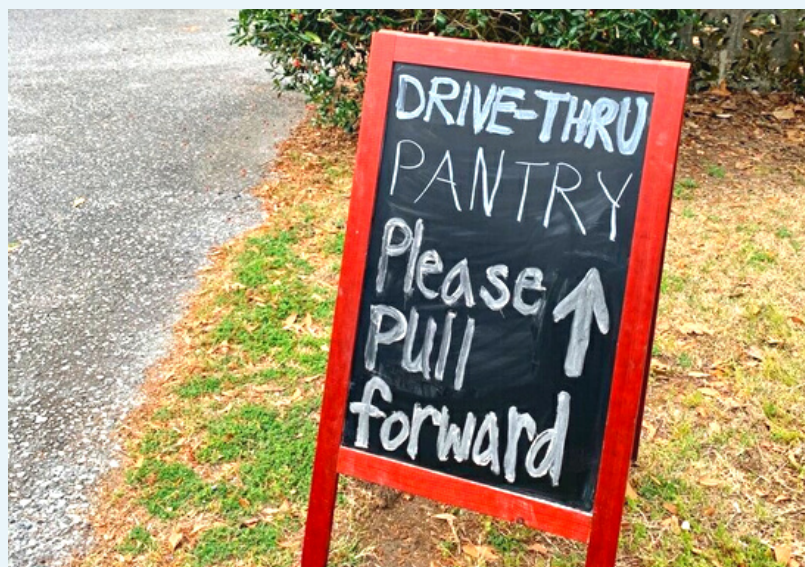 DRIVE-THRU
PANTRY
Please
PUll
forward